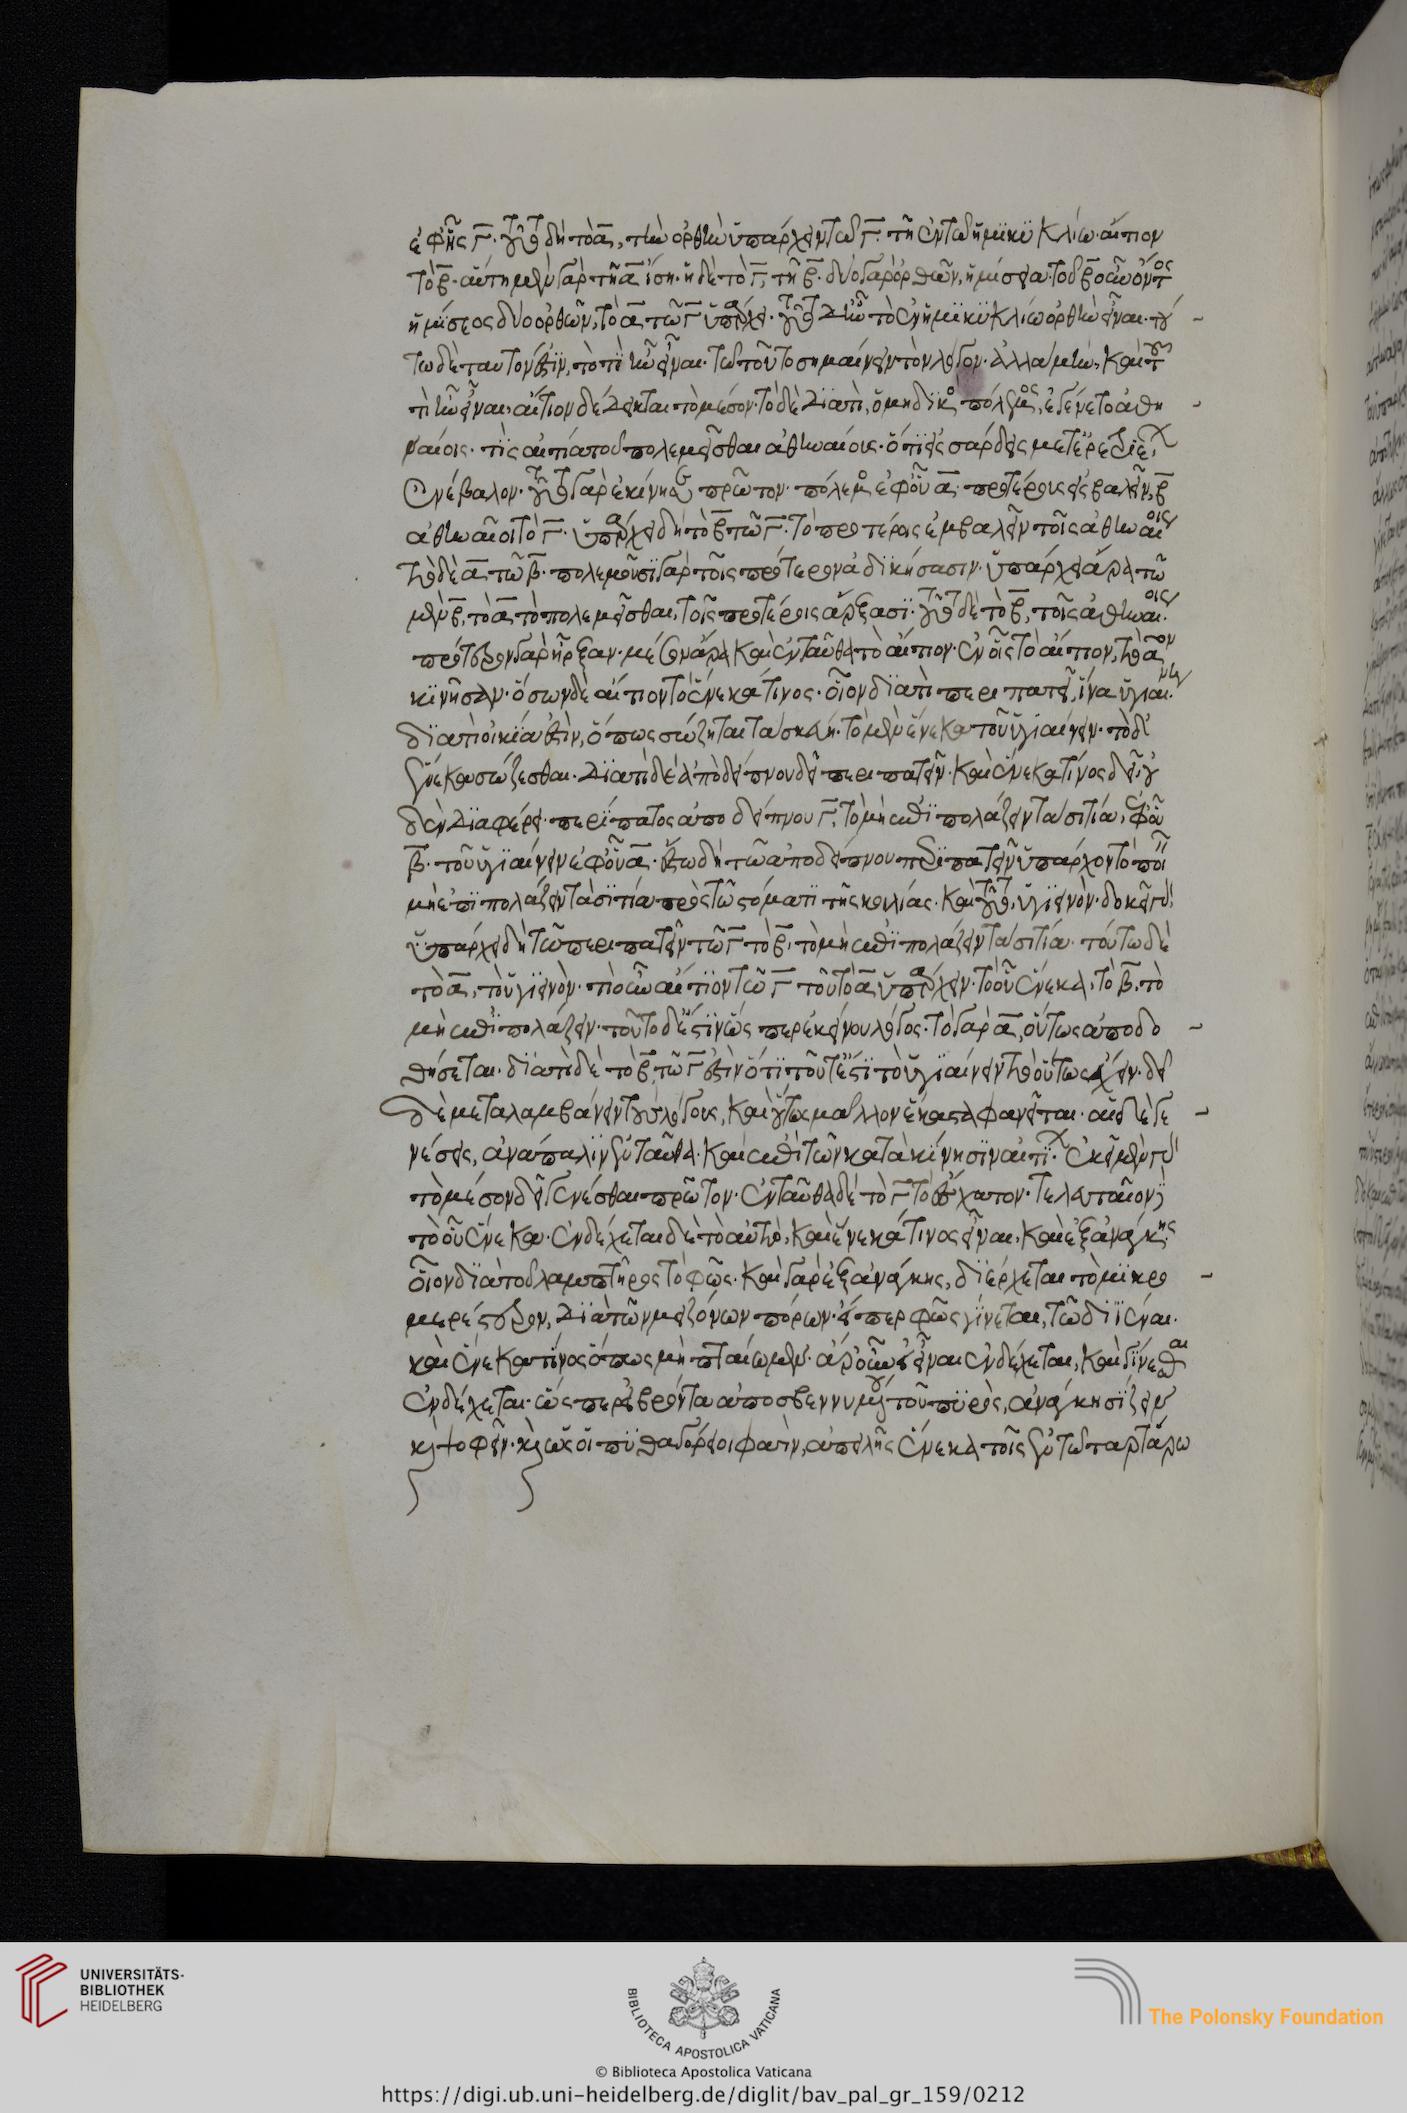 ἐφ' ἧς Γ. τοῦτο δὴ τὸ Α, τὴν ὀρθὴν ὑπάρχειν τῶ Γ. τῆ ἐν τῶ ἡμικυκλίω. αἴτιον
τὸ Β. αὕτη μὲν γὰρ τῆ Α ἴση. ἡ δὲ τὸ Γ, τῆ Β. δύο γὰρ ὀρθῶν, ἡμίσεια. τοῦ Β οὖν ὄντος
ἡμίσεος δύο ὀρθῶν, τὸ Α τῶ Γ ὑπάρχει. τοῦτο δ' ἦν τὸ ἐν ἡμικυκλίω ὀρθὴν εἶναι. τού
τω δὲ ταυτόν ἐστιν, τὸ τί ἦν εἶναι. τῶ τοῦτο σημαίνειν τὸν λόγον. ἀλλὰ μὴν, καὶ τοῦ
τί ἦν εἶναι, αἴτιον δέδεικται τὸ μέσον. τὸ δὲ διατὶ, ὁ μηδικὸς πόλεμος, ἐγένετο ἀθη
ναίοις. τίς αἰτία τοῦ πολεμεῖσθαι ἀθηναίοις. ὅτι εἰς σάρδεις μετ' ἐρετριέων
ἐνέβαλον. τοῦτο γὰρ ἐκίνησε πρῶτον. πόλεμος ἐφ' οὗ Α. προτέρους εἰσβαλεῖν, Β
ἀθηναῖοι τὸ Γ. ὑπάρχει δὴ τὸ Β τῶ Γ. τὸ προτέροις ἐμβαλεῖν τοῖς ἀθηναίοις
τὸ δὲ Α τῶ Β. πολεμοῦσι γὰρ τοῖς πρότερον ἀδικήσασιν. ὑπάρχει ἄρα τῶ
μὲν Β, τὸ Α τὸ πολεμεῖσθαι, τοῖς προτέροις ἄρξασι. τοῦτο δὲ τὸ Β, τοῖς ἀθηναίοις.
πρότερον γὰρ ἦρξαν. μέσον ἄρα καὶ ἐνταῦθα τὸ αἴτιον. ἐν οἷς τὸ αἴτιον, τὸ πρῶτον
κινῆσαν. ὅσων δὲ αἴτιον τὸ ἕνεκα τίνος. οἷον διατὶ περιπατεῖ, ἵνα ὑγιαίνη.
διατὶ οἰκία ἐστὶν, ὅπως σώζηται τὰ σκεύη. τὸ μὲν ἕνεκα τοῦ ὑγιαίνειν. τὸ δ'
ἕνεκα σώζεσθαι. διατὶ δὲ ἀπὸ δείπνου δεῖ περιπατεῖν. καὶ ἕνεκα τίνος δεῖ, οὐ
δὲν διαφέρει. περίπατος ἀπο δείπνου Γ, τὸ μὴ ἐπιπολάζειν τὰ σιτία, ἐφ' οὗ
Β. τοῦ ὑγιαίνειν ἐφ' οὗ Α. ἔστω δὴ τῶ ἀποδείπνου περιπατεῖν ὑπάρχον τὸ ποιεῖν
μὴ ἐπιπολάζειν τὰ σιτία πρὸς τῶ στόματι τῆς κοιλίας. καὶ τοῦτο, ὑγιεινὸν. δοκεῖ γὰρ
ὑπάρχειν δὴ τῶ περιπατεῖν τῶ Γ τὸ Β. τὸ μὴ ἐπιπολάζειν τὰ σιτία. τούτω δὲ
τὸ Α, τὸ ὑγιεινὸν. τί οὖν αἴτιον τῶ Γ τοῦ τὸ Α ὑπάρχειν. τὸ οὗ ἕνεκα, τὸ Β. τὸ
μὴ ἐπιπολάζειν. τοῦτο δ' ἐστὶν ὥσπερ ἐκείνου λόγος. τὸ γὰρ Α, οὕτως ἀποδο
θήσεται. διατὶ δὲ τὸ Β τῶ Γ ἐστὶν ὅτι τοῦτ' ἐστὶ τὸ ὑγιαίνειν τὸ οὕτως ἔχειν. δεῖ
δὲ μεταλαμβάνειν τοὺς λόγους, καὶ οὕτως μαλλον ἕκαστα φανεῖται. αἱ δὲ γε
νέσεις, ἀνάπαλιν ἐνταῦθα. καὶ ἐπὶ τῶν κατὰ κίνησιν αἰτίων. ἐκεῖ μὲν γὰρ
τὸ μέσον δεῖ γενέσθαι πρῶτον. ἐνταῦθα δὲ τὸ Γ τὸ ἔσχατον. τελευταῖον δὲ
τὸ οὗ ἕνεκα. ἐνδέχεται δὲ τὸ αὐτὸ, καὶ ἕνεκά τινος εἶναι, καὶ ἐξ ἀνάγκης
οἷον διὰ τοῦ λαμπτῆρος τὸ φῶς. καὶ γὰρ ἐξ ἀνάγκης, διέρχεται τὸ μικρο
μερέστερον, διὰ τῶν μειζόνων πόρων. εἴπερ φῶς γίνεται, τῶ διϊέναι.
καὶ ἕνεκα τινὸς ὅπως μὴ πταίωμεν. ἆρ' οὖν εἰ εἶναι ἐνδέχεται, καὶ γίνεσθαι
ἐνδέχεται. ὥσπερ εἰ βροντᾶ ἀποσβεννυμένου τοῦ πυρὸς, ἀνάγκη σίζειν
καὶ ψοφεῖν. καὶ ὡς οἱ πυθαγόρειοι φασὶν, ἀπειλῆς ἕνεκα τοῖς ἐν τῶ ταρτάρω
UNIVERSITÄTS-
BIBLIOTHEK
HEIDELBERG
BIBLIOTECA APOSTOLICA VATICANA
The Polonsky Foundation
© Biblioteca Apostolica Vaticana
https://digi.ub.uni-heidelberg.de/diglit/bav_pal_gr_159/0212